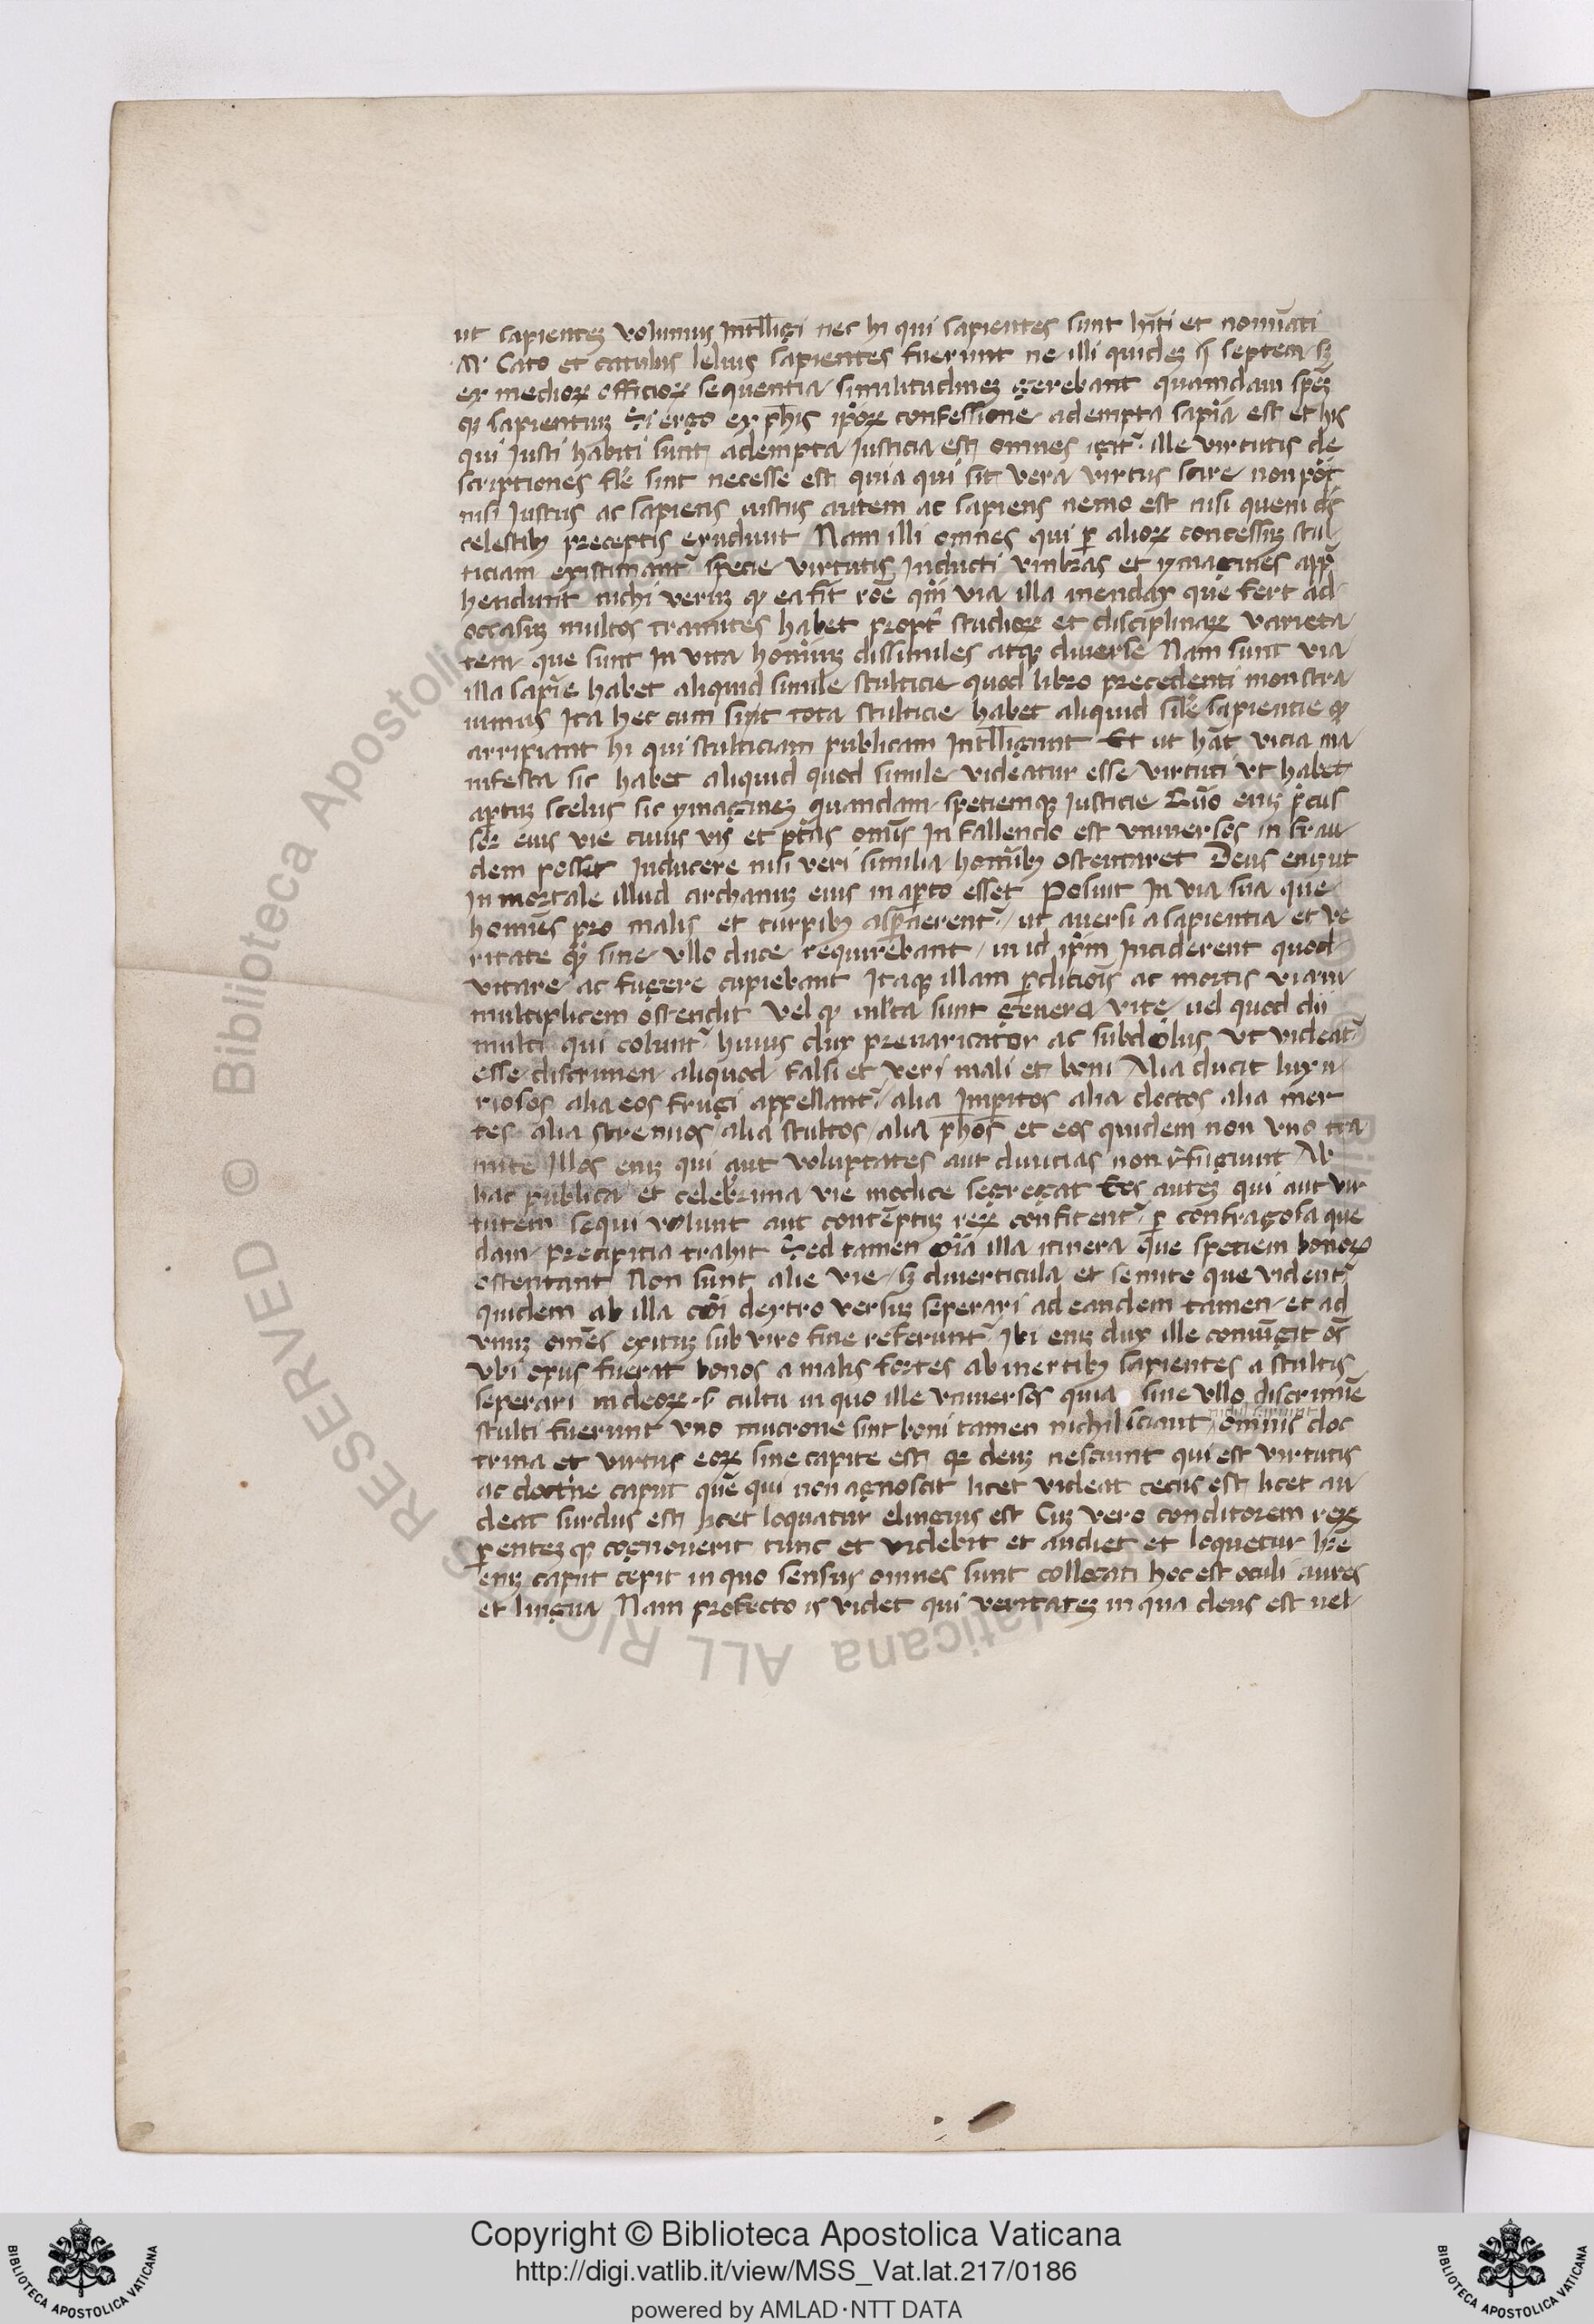 ut sapientez volumus Intll̅igi nec hi qui sapientes sunt hn̅ti et nomīati
M. Cato et catulus lelius sapientes fuerunt ne illi quidez si septem sz
ex medioꝝ officioꝝ sequentia similitudinez gerebant quamdam spe̅z
qꝫ sapientum Si ergo ex ph̅is ip̅oꝝ confessione adempta sap̅ia est et his
qui Justi habiti sunt adempta Justicia est omnes igit᷑ ille virtutis de
scriptiones fl̅e sint necesse est quia qui sit vera virtus scire non pōt
nisi Justus ac sapiens iustus autem ac sapiens nemo est nisi quem ds̅
celestibꝫ preceptis erudiuit Nam illi omnes qui ꝑ alioꝝ concessuz stul
ticiam existimant᷑ specie virtutis Inducti vmbras et ymagines app̅
hendunt nichi veruz qꝫ ea fit rōe qm̅ via illa mendax que fert ad
occasuz multos tramites habet propt᷑ studioꝝ et disciplinaꝝ varieta
tem que sunt In vita hom̅inuz dissimiles atqꝫ diuerse Nam sunt via
illa sap̅ie habet aliquid simile stulticie quod libro precedenti monstra
uimus Ita hec cum sint tota stulticie habet aliquid sil̅e sapientie qꝫ
arripiant hi qui stulticiam publicam Intll̅igunt Et ut ha̅t vicia ma
nifesta sic habet aliquid quod simile videatur esse virtuti vt habet
aꝑtuz scelus sic ymaginez quandam spetiemqꝫ Justicie Quō eniz p̅cus
sor eius vie cuius vis et pt̅as om̅is In fallendo est vniuersos in frau
dem posset Inducere nisi veri similia homībꝫ ostentaret Deus eniz ut
In mortale illud archanuz eius in aꝑto esset Posuit In via sua que
homi̅es pro malis et turpibꝫ aspernerent᷑ ut auersi a sapientia et ve
ritate qm̅ sine vllo duce requirebant in id ip̅m Inciderent quod
vitare ac fugere cupiebant Itaqꝫ illam ꝑdicioi̅s ac mortis viam
multiplicem ostendit vel qꝫ ml̅ta sunt genera vite uel quod dii
multi qui colunt᷑ huius dux preuaricator ac subdolus vt videat᷑
esse discrimen aliquod falsi et veri mali et boni Alia ducit luxu
riosos alia eos frugi appellant᷑ alia Imꝑitos alia doctos alia iner
tes alia strenuos alia stultos alia ph̅os et eos quidem non vno tra
mite Illos eniz qui aut voluptates aut diuicias non r̅fugiunt Ab
hac publica et celeb᷑rima vie modice segregat Eos autez qui aut vir
tutem sequi volunt aut contēptuz reꝝ confitent᷑ ꝑ confragosa que
dam precipitia trahit Sed tamen oi̅a illa itinera que spetiem bonoꝝ
ostentant Non sunt alie vie sz diuerticula et semite que vident᷑
quidem ab illa co̅i dextro versuz seperari ad eandem tamen et ad
vnuz omēs exituz sub viro fine referunt᷑ Ibi eniz dux ille coniūgit os̅
vbi opus fuerat bonos a malis fortes ab inertibꝫ sapientes a stultis
seperari in deoꝝ .s. cultu in quo ille vniuersos quia sine vllo discrimīe
stulti fuerunt vno mucrone sint boni tamen nichil sciant omnis doc
trina et virtus eoꝝ sine capite est qꝫ deuz nesciunt qui est virtutis
ac doctrīe caput quē qui non agnoscit licet videat cecus est licet au
deat surdus est licet loquatur elinguis est Cuz vero conditorem reꝝ
ꝑentezqꝫ cognouerit tunc et videbit et audiet et loquetur hr̅e
eniz caput cepit in quo sensus omnes sunt collocati hoc est oculi aures
et lingua Nam profecto is videt qui veritatez in qua deus est uel
Copyright © Biblioteca Apostolica Vaticana
http://digi.vatlib.it/view/MSS_Vat.lat.217/0186
powered by AMLAD·NTT DATA